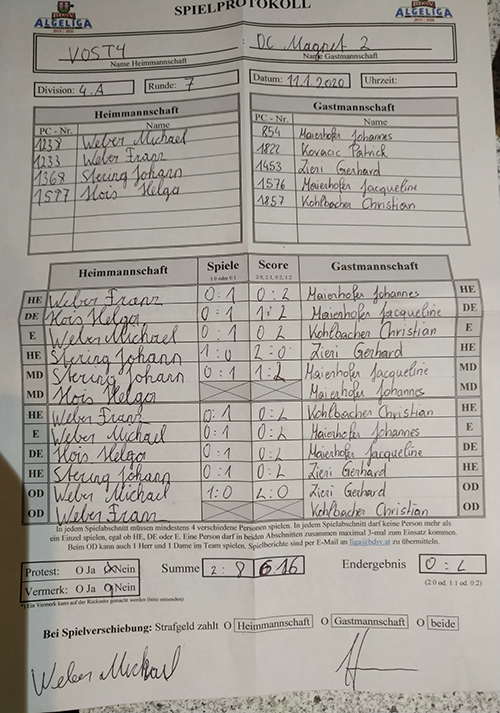 SPIELPROTOKOLL
ALGELIGA ALGELIGA
VOST4 : DC Magnet 2
Name Heimmannschaft Name Gastmannschaft
Division: 4.A Runde: 7 Datum: 11.1.2020 Uhrzeit:
Heimmannschaft Gastmannschaft
PC - Nr. Name PC - Nr. Name
1238 Weber Michael 854 Maierhofer Johannes
1233 Weber Franz 1822 Kovacic Patrick
1368 Stering Johann 1453 Zieri Gerhard
1577 Hois Helga 1576 Maierhofer Jacqueline
1857 Kohlbacher Christian
Heimmannschaft Spiele Score Gastmannschaft
1:0 oder 0:1 2:0, 2:1, 0:2, 1:2
HE Weber Franz 0:1 0:2 Maierhofer Johannes HE
DE Hois Helga 0:1 1:2 Maierhofer Jacqueline DE
E Weber Michael 0:1 0 2 Kohlbacher Christian E
HE Stering Johann 1:0 2:0 Zieri Gerhard HE
MD Stering Johann 0:1 1:2 Maierhofer Jacqueline MD
MD Hois Helga Maierhofer Johannes MD
HE Weber Franz 0:1 0:2 Kohlbacher Christian HE
E Weber Michael 0:1 0:2 Maierhofer Johannes E
DE Hois Helga 0:1 0:2 Maierhofer Jacqueline DE
HE Stering Johann 0:1 0:2 Zieri Gerhard HE
OD Weber Michael 1:0 2:0 Zieri Gerhard OD
OD Weber Franz Kohlbacher Christian OD
In jedem Spielabschnitt müssen mindestens 4 verschiedene Personen spielen. In jedem Spielabschnitt darf keine Person mehr als
ein Einzel spielen, egal ob HE, DE oder E. Eine Person darf in beiden Abschnitten zusammen maximal 3-mal zum Einsatz kommen.
Beim OD kann auch 1 Herr und 1 Dame im Team spielen, Spielberichte sind per E-Mail an liga@bdsv.at zu übermitteln.
Protest: O Ja O Nein Summe 2:8 6:16 Endergebnis 0:2
Vermerk: O Ja O Nein (2:0 od. 1:1 od. 0:2)
*) Ein Vermerk kann auf der Rückseite gemacht werden (bitte ankreuzen)
Bei Spielverschiebung: Strafgeld zahlt O Heimmannschaft O Gastmannschaft O beide
Weber Michael